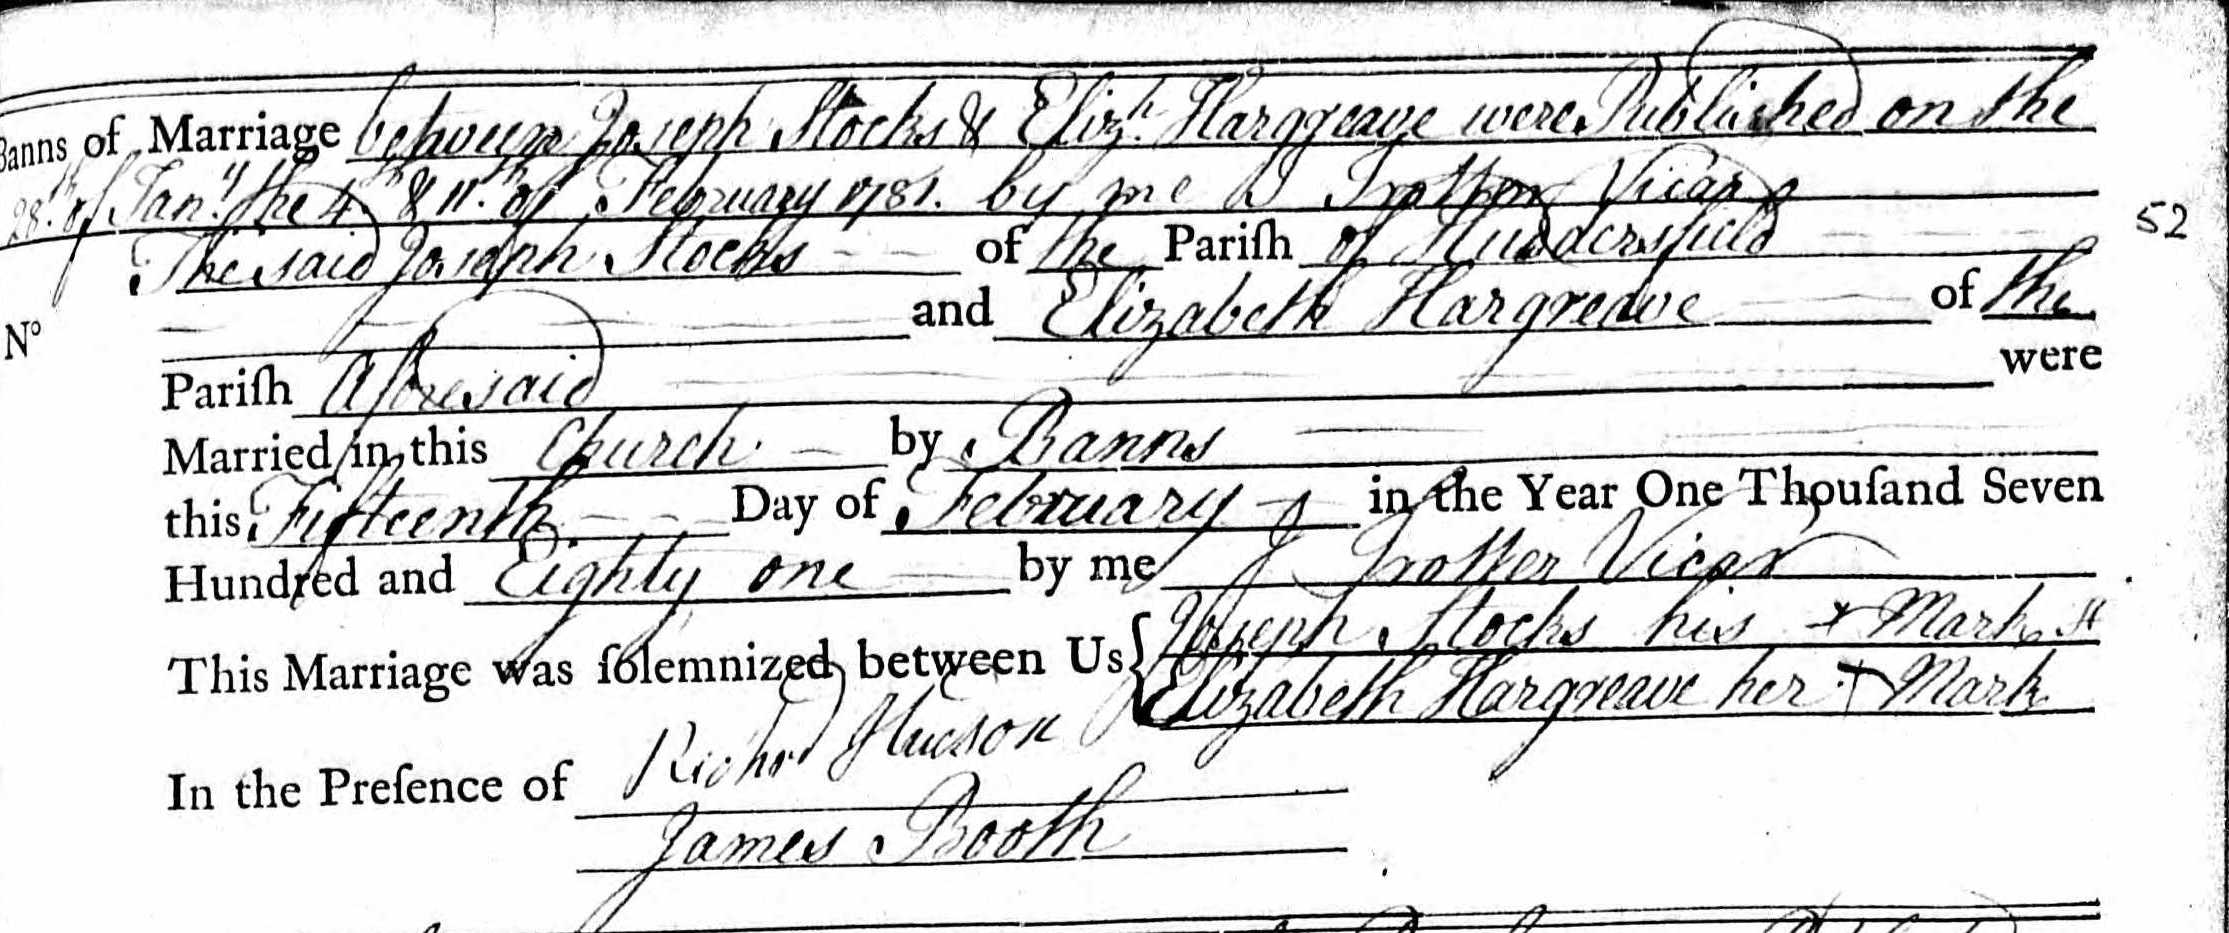 Banns of Marriage between Joseph Stocks & Elizh. Hargreave were Published on the
28th. of Jany. the 4th. & 11th. of February 1781. by me J Trotter Vicar
The said Joseph Stocks of the Pariſh of Huddersfield
52
No and Elizabeth Hargreave of the
Pariſh Aforesaid were
Married in this Church by Banns
this Fifteenth Day of February in the Year One Thouſand Seven
Hundred and Eighty one by me J Trotter Vicar
This Marriage was ſolemnized between Us { Joseph Stocks his x Mark
Elizabeth Hargreave her + Mark
In the Preſence of Richd Hudson
James Booth